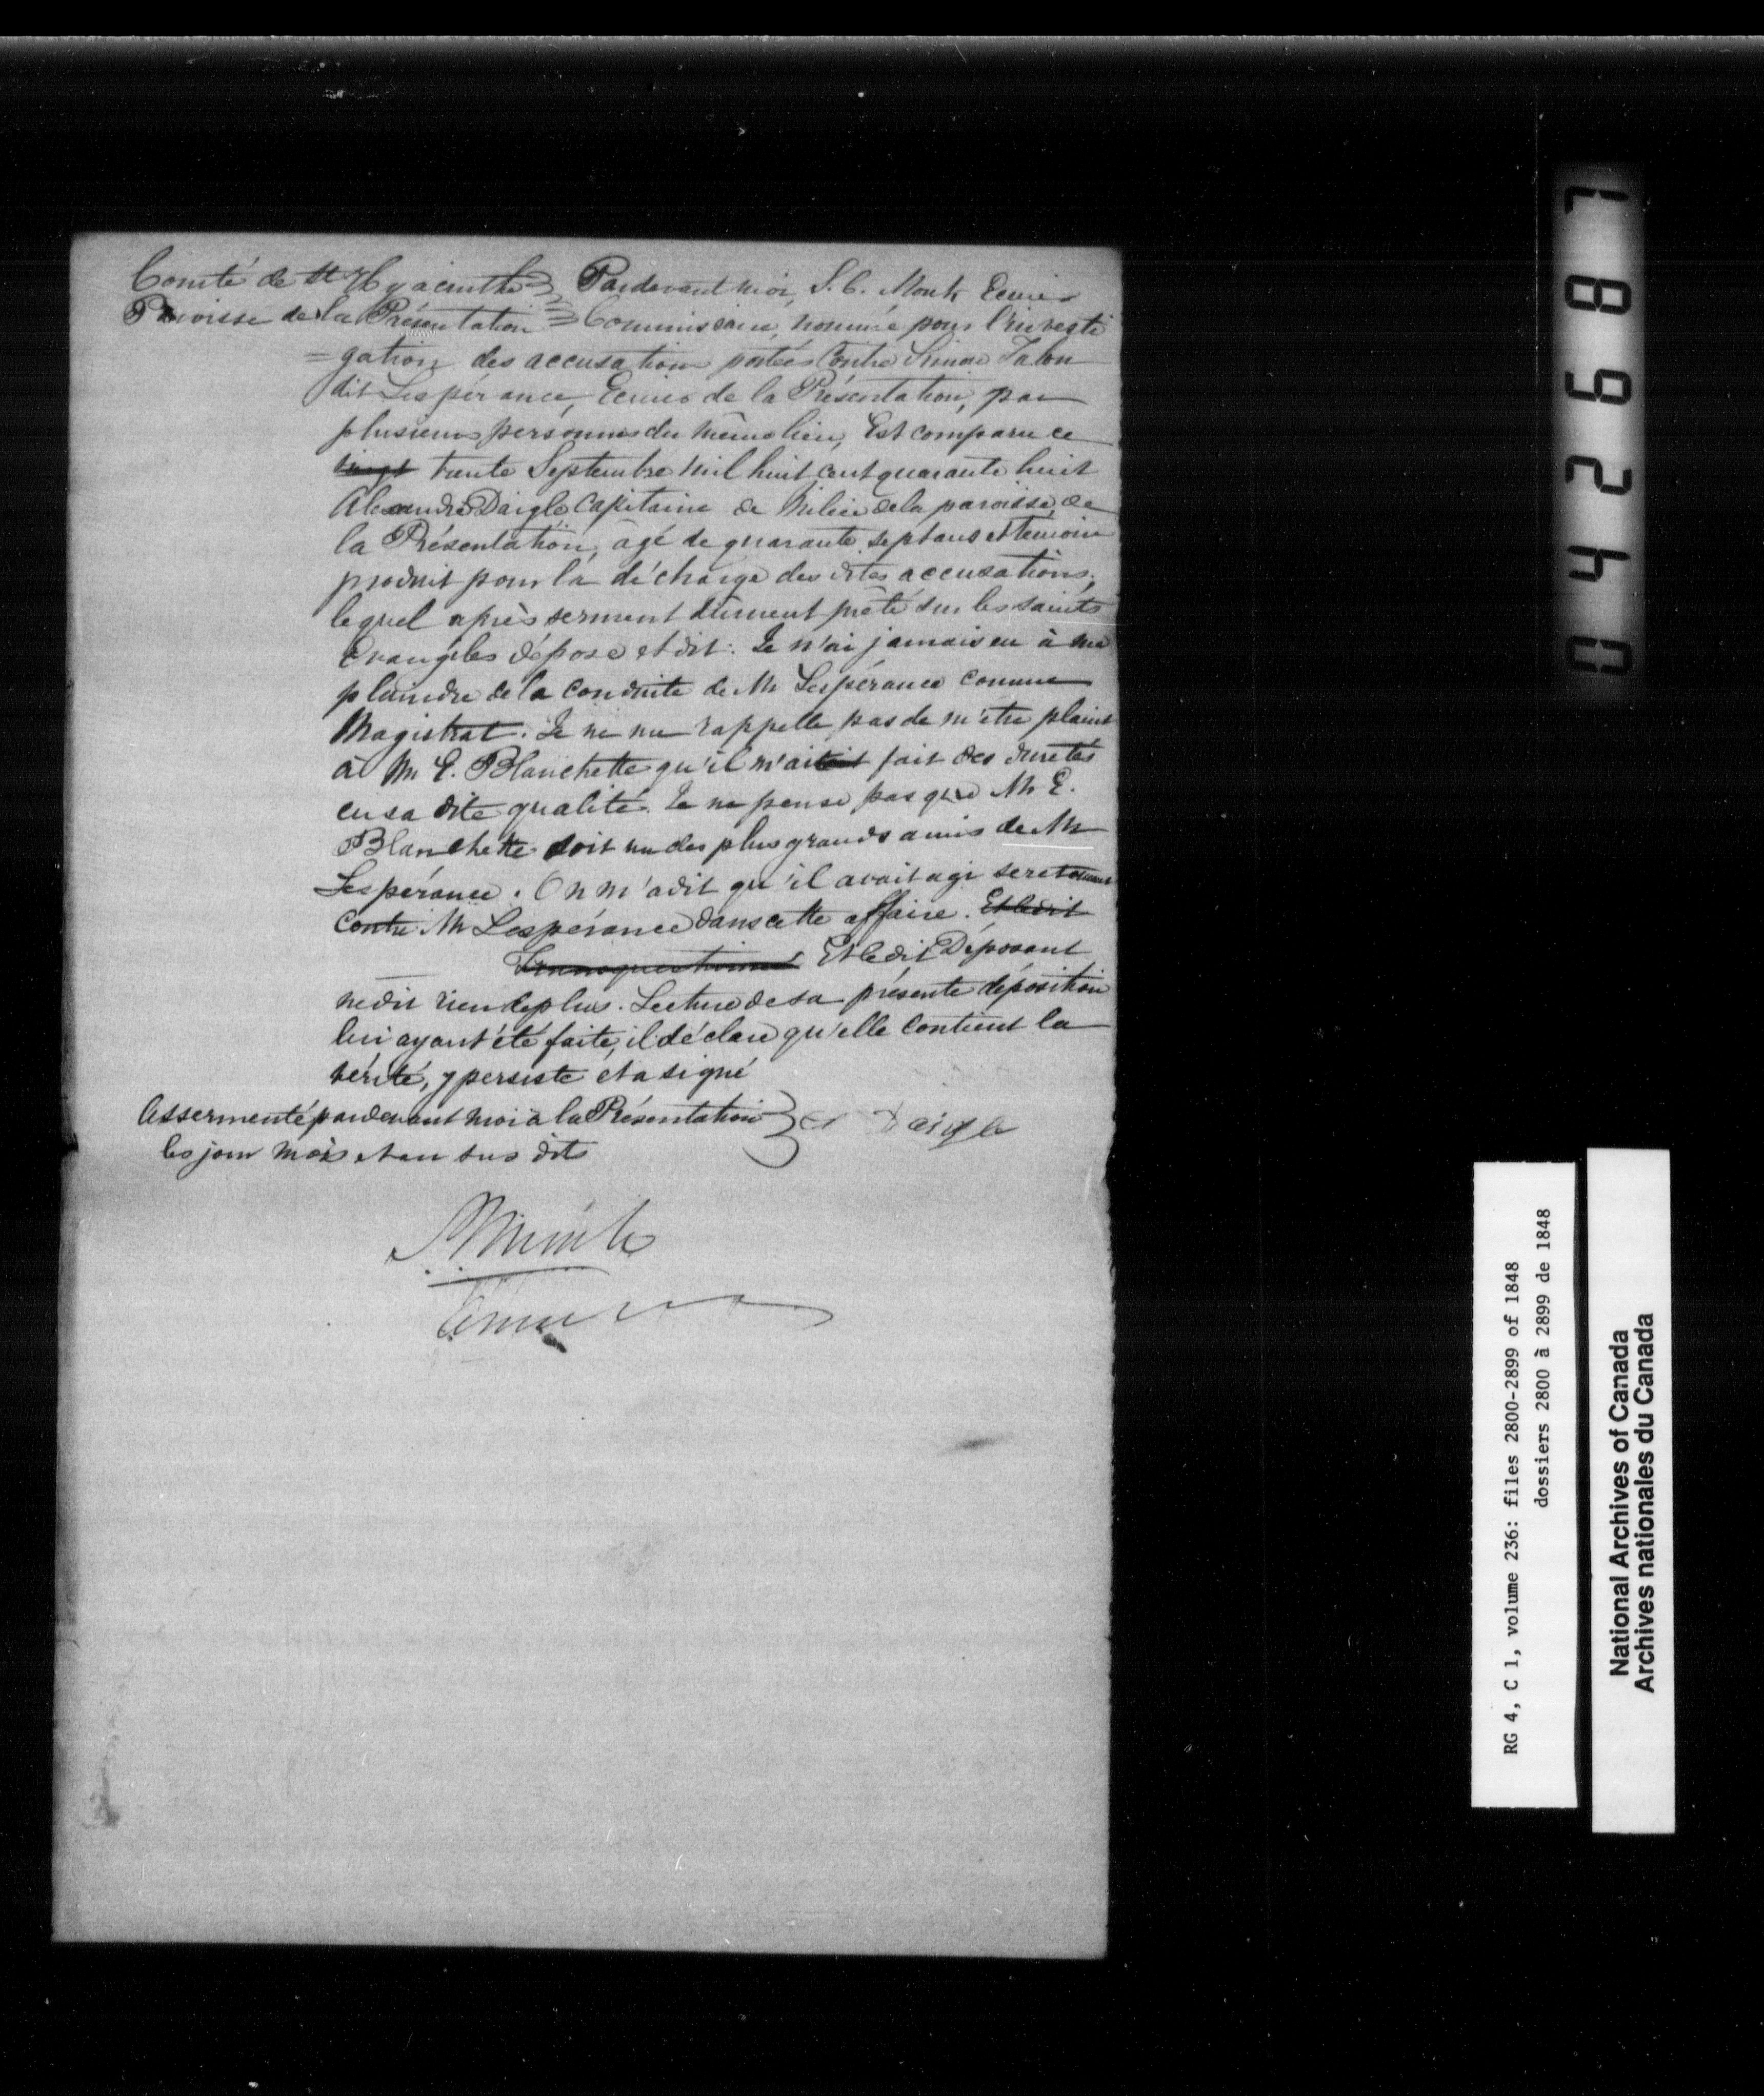 Comté de St Hyacinthe } Pardevant moi, S. C. Monk Ecuier
Paroisse de la Présentation } Commissaire, nommé pour l'investi
=gation des accusations portées contre Simon Talon
dit Lespérance, Ecuier de la Présentation, par
plusieurs personnes du même lieu, Est comparu ce
vingt trente Septembre mil huit cent quarante huit
Alexandre Daigle Capitaine de Milice de la paroisse de
la Présentation, âgé de quarante sept ans et temoin
produit pour la décharge des dites accusations;
lequel après serment dûment prêté sur les saints
Evangiles dépose et dit: Je n'ai jamais eu à me
plaindre de la conduite de Mr Lespérance comme
Magistrat. Je ne me rappelle pas de m'être plaint
à Mr E. Blanchette qu'il m'ait fait des duretés
en sa dite qualité. Je ne pense pas que Mr E.
Blanchette soit un des plus grands amis de Mr
Lespérance. On m'a dit qu'il avait agi
contre Mr Lespérance dans cette affaire. Et ledit
Transquestionné Et le dit Déposant
ne dit rien de plus. Lecture de sa présente déposition
lui ayant été faite, il déclare qu'elle contient la
vérité, y persiste et a signé
Assermenté pardevant moi à la Présentation } Daigle
les jour mois et an sus dits
RG 4, C 1, volume 236: files 2800-2899 of 1848
dossiers 2800 à 2899 de 1848
National Archives of Canada
Archives nationales du Canada
042687